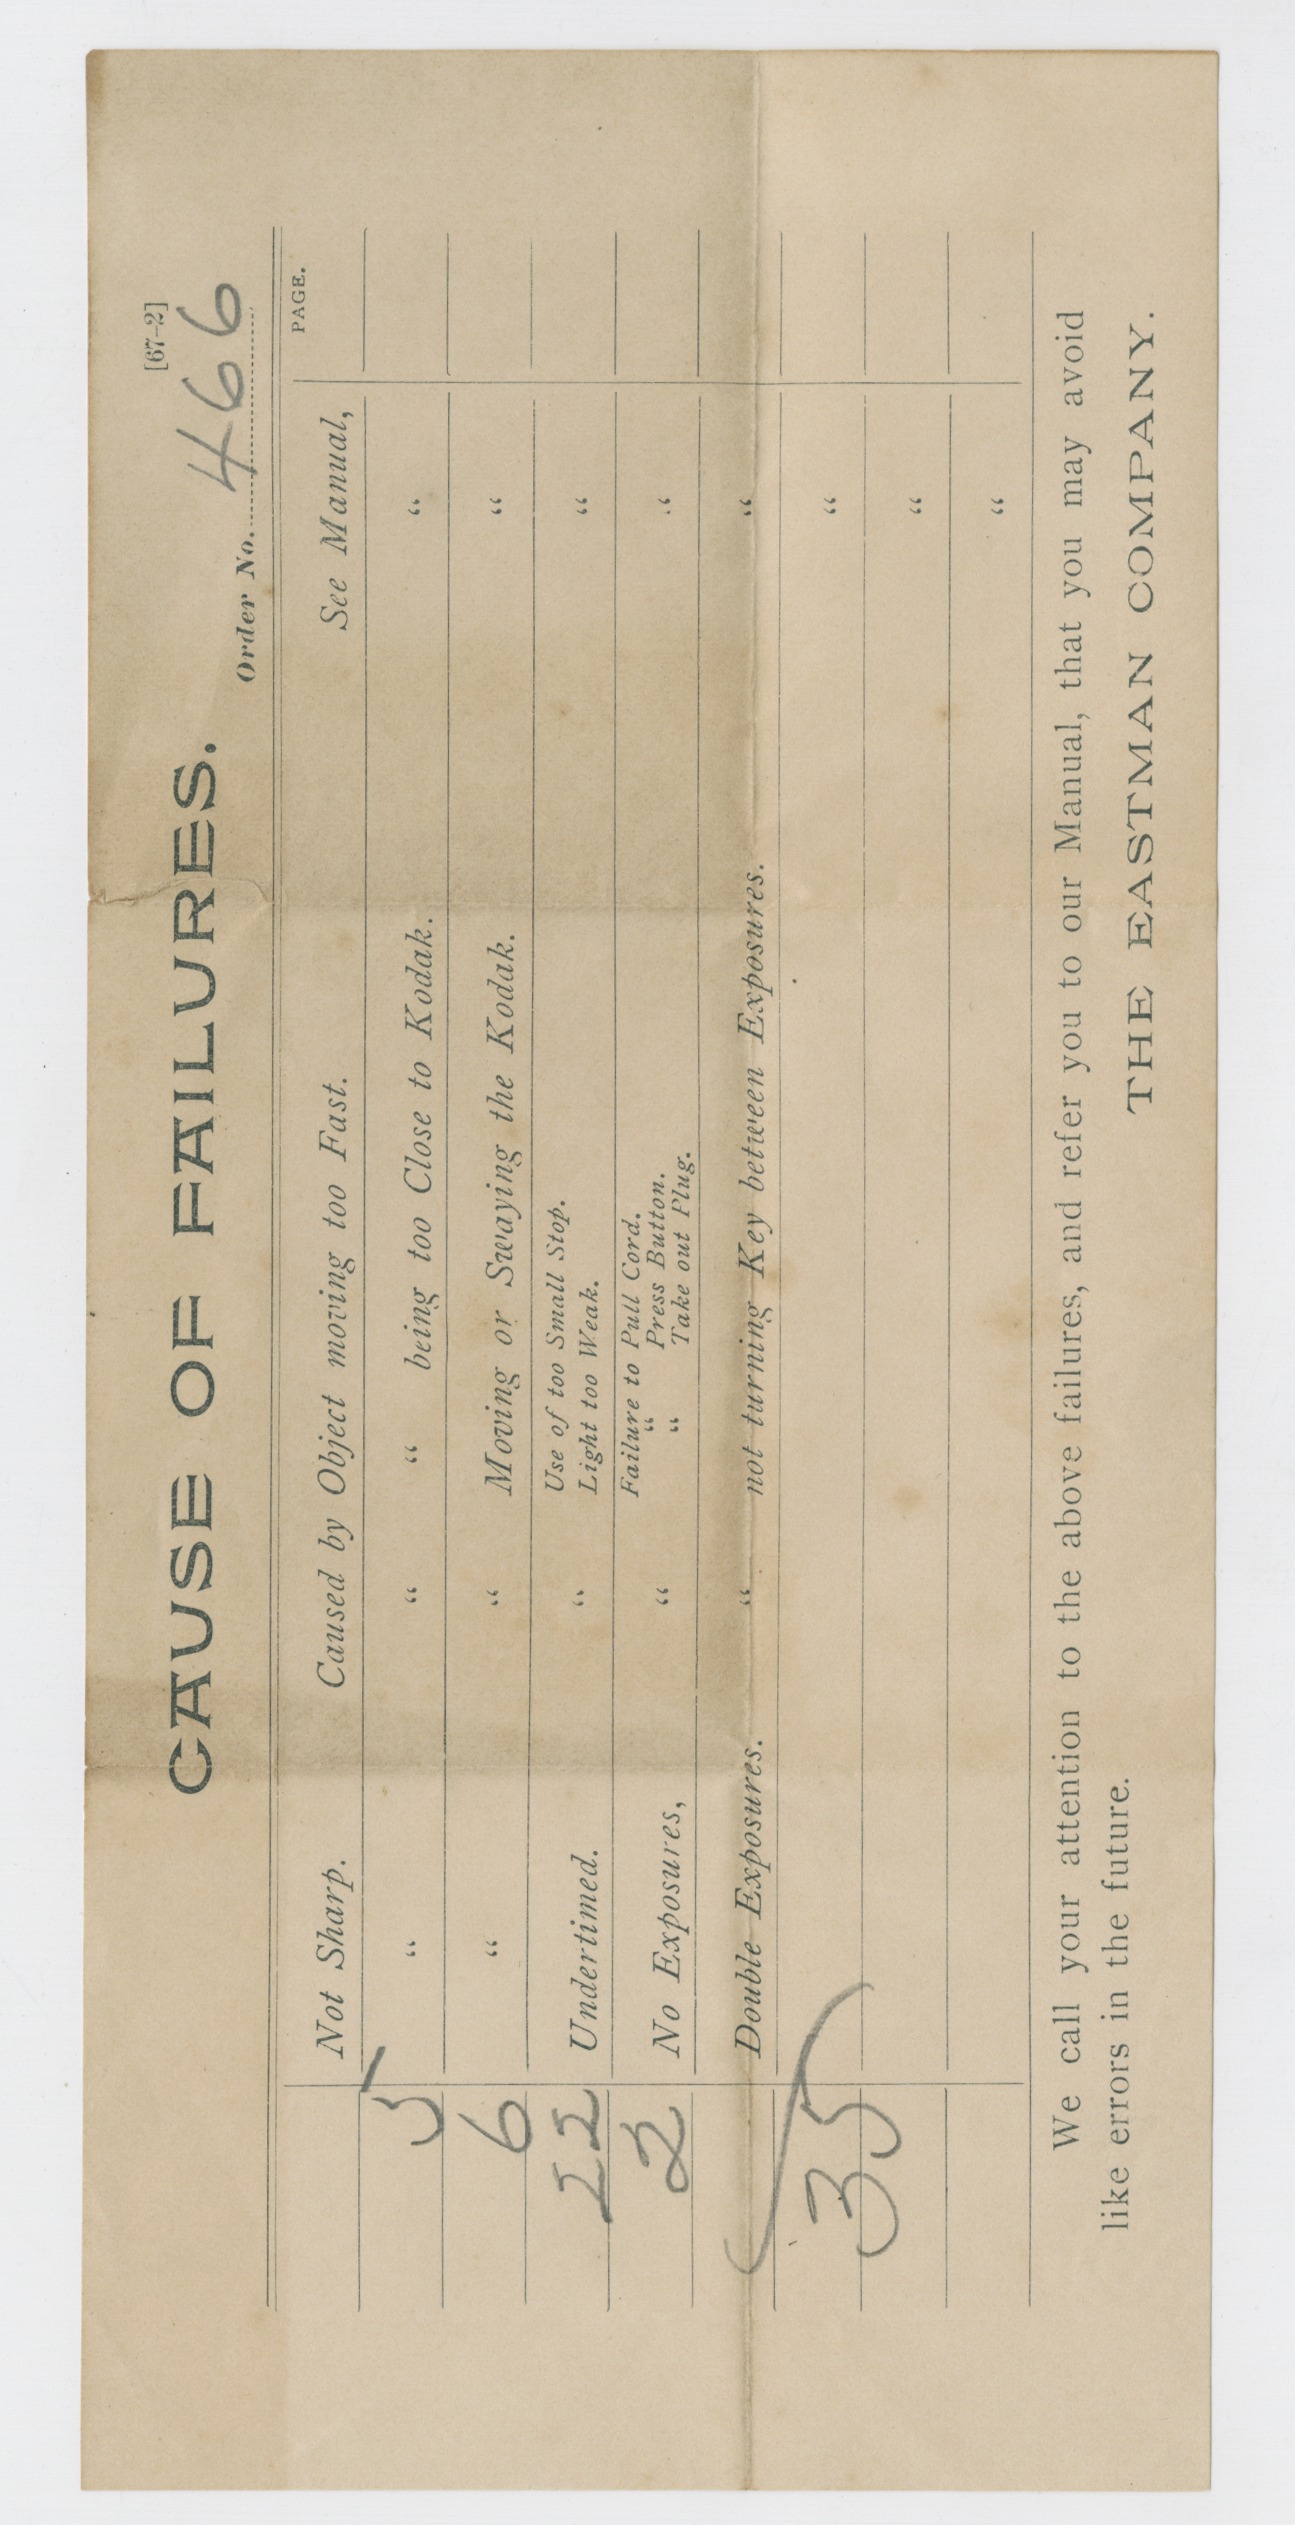 [67-2]
CAUSE OF FAILURES.
Order No. 466
PAGE.
Not Sharp. Caused by Object moving too Fast. See Manual,
5 " " " being too Close to Kodak. "
6 " " Moving or Swaying the Kodak. "
22 Undertimed. " Use of too Small Stop. "
Light too Weak.
2 No Exposures, " Failure to Pull Cord. "
" Press Button.
" Take out Plug.
Double Exposures. " not turning Key between Exposures. "
35 "
"
"
We call your attention to the above failures, and refer you to our Manual, that you may avoid
like errors in the future.
THE EASTMAN COMPANY.